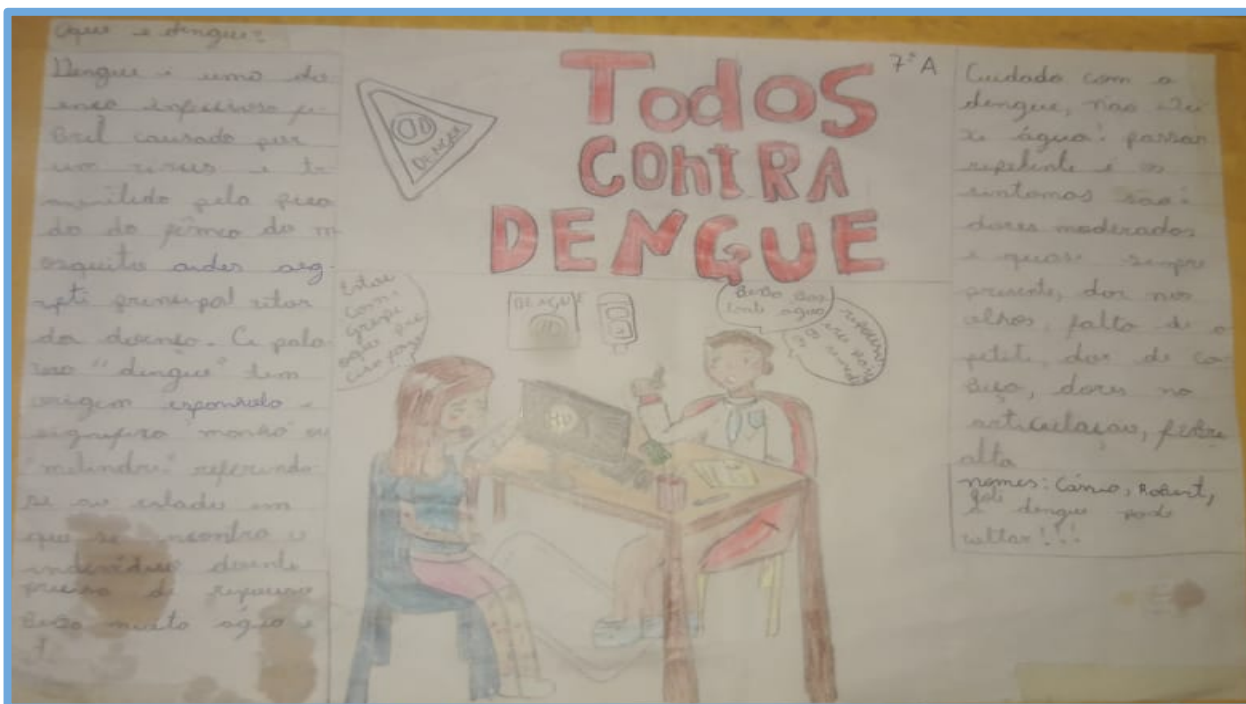 Oque e dengue?
Dengue é uma do
ença infecciosa fe
bril causado por
um virus e tr
ansmitido pela pica
da do fêmea do m
osquito
principal
da doença. A pala
vra "dengue" tem
origem espanhola e
significa "manha ou
"melindre" referindo
se ao estado em
que se encontra o
individuo doente
precisa de repouso
Beba muito água e
DENGUE
TodoS
CONTRA
DENGUE
7ª A
Estou
com
gripe
DENGUE
Beba bas
tante água
Cuidado com a
dengue, não dei
xe água! passar
repelente e os
sintomas são:
dores moderados
e quase sempre
presente, dor nos
olhos, falta de a
petite, dor de ca
beça, dores no
articulação, febre
alta
nomes: Robert,
dengue pode